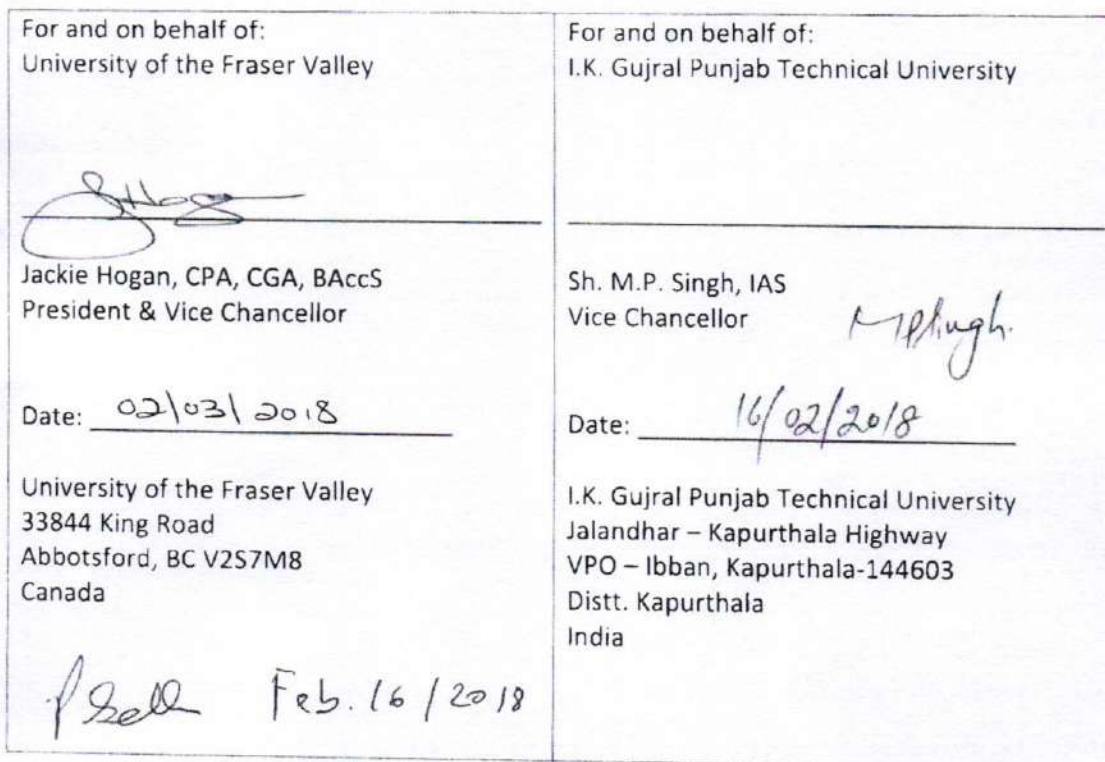 For and on behalf of:
University of the Fraser Valley
Jackie Hogan, CPA, CGA, BAccS
President & Vice Chancellor
Date: 02\03\2018
University of the Fraser Valley
33844 King Road
Abbotsford, BC V2S7M8
Canada
Feb. 16 / 2018
For and on behalf of:
I.K. Gujral Punjab Technical University
Sh. M.P. Singh, IAS
Vice Chancellor
MPSingh.
Date: 16/02/2018
I.K. Gujral Punjab Technical University
Jalandhar – Kapurthala Highway
VPO – Ibban, Kapurthala-144603
Distt. Kapurthala
India